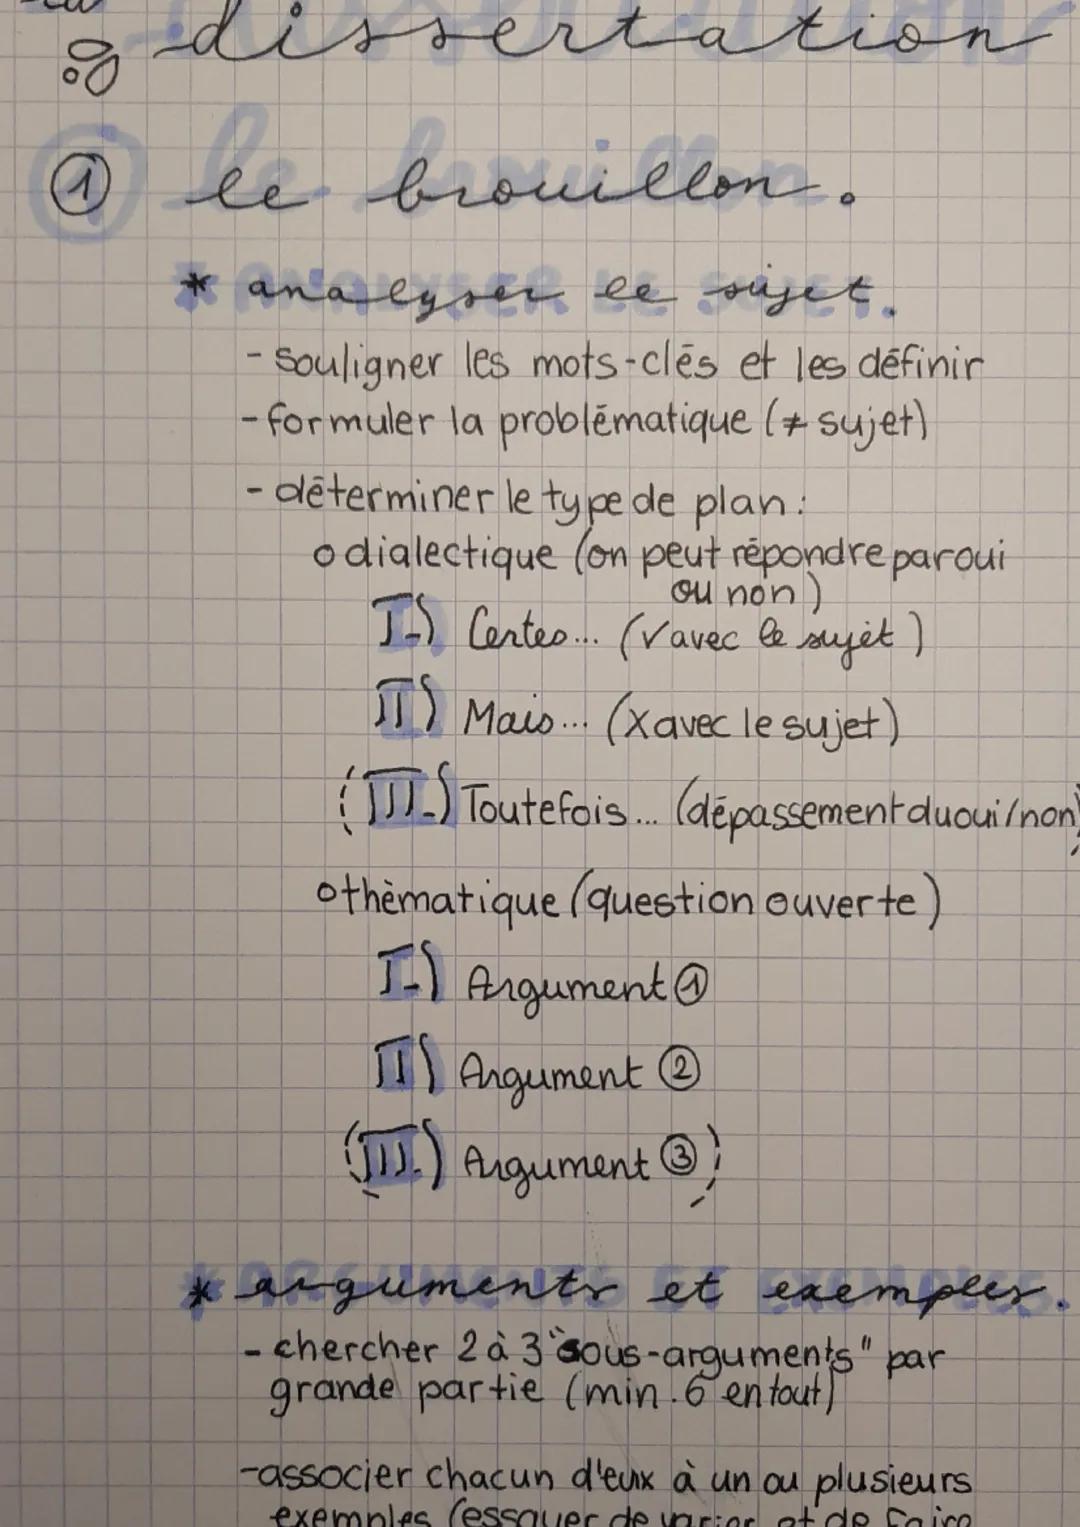 dissertation
① le brouillon.
* analyser le sujet.
- souligner les mots-clés et les définir
- formuler la problématique (≠ sujet)
- déterminer le type de plan :
o dialectique (on peut répondre par oui
ou non)
I-) Certes... (V avec le sujet)
II) Mais... (X avec le sujet)
(III-) Toutefois... (dépassement du oui/non)
o thématique (question ouverte)
I-) Argument ①
II) Argument ②
(III.) Argument ③)
* arguments et exemples.
- chercher 2 à 3 "sous-arguments" par
grande partie (min. 6 en tout)
- associer chacun d'eux à un ou plusieurs
exemples (essayer de varier et de faire